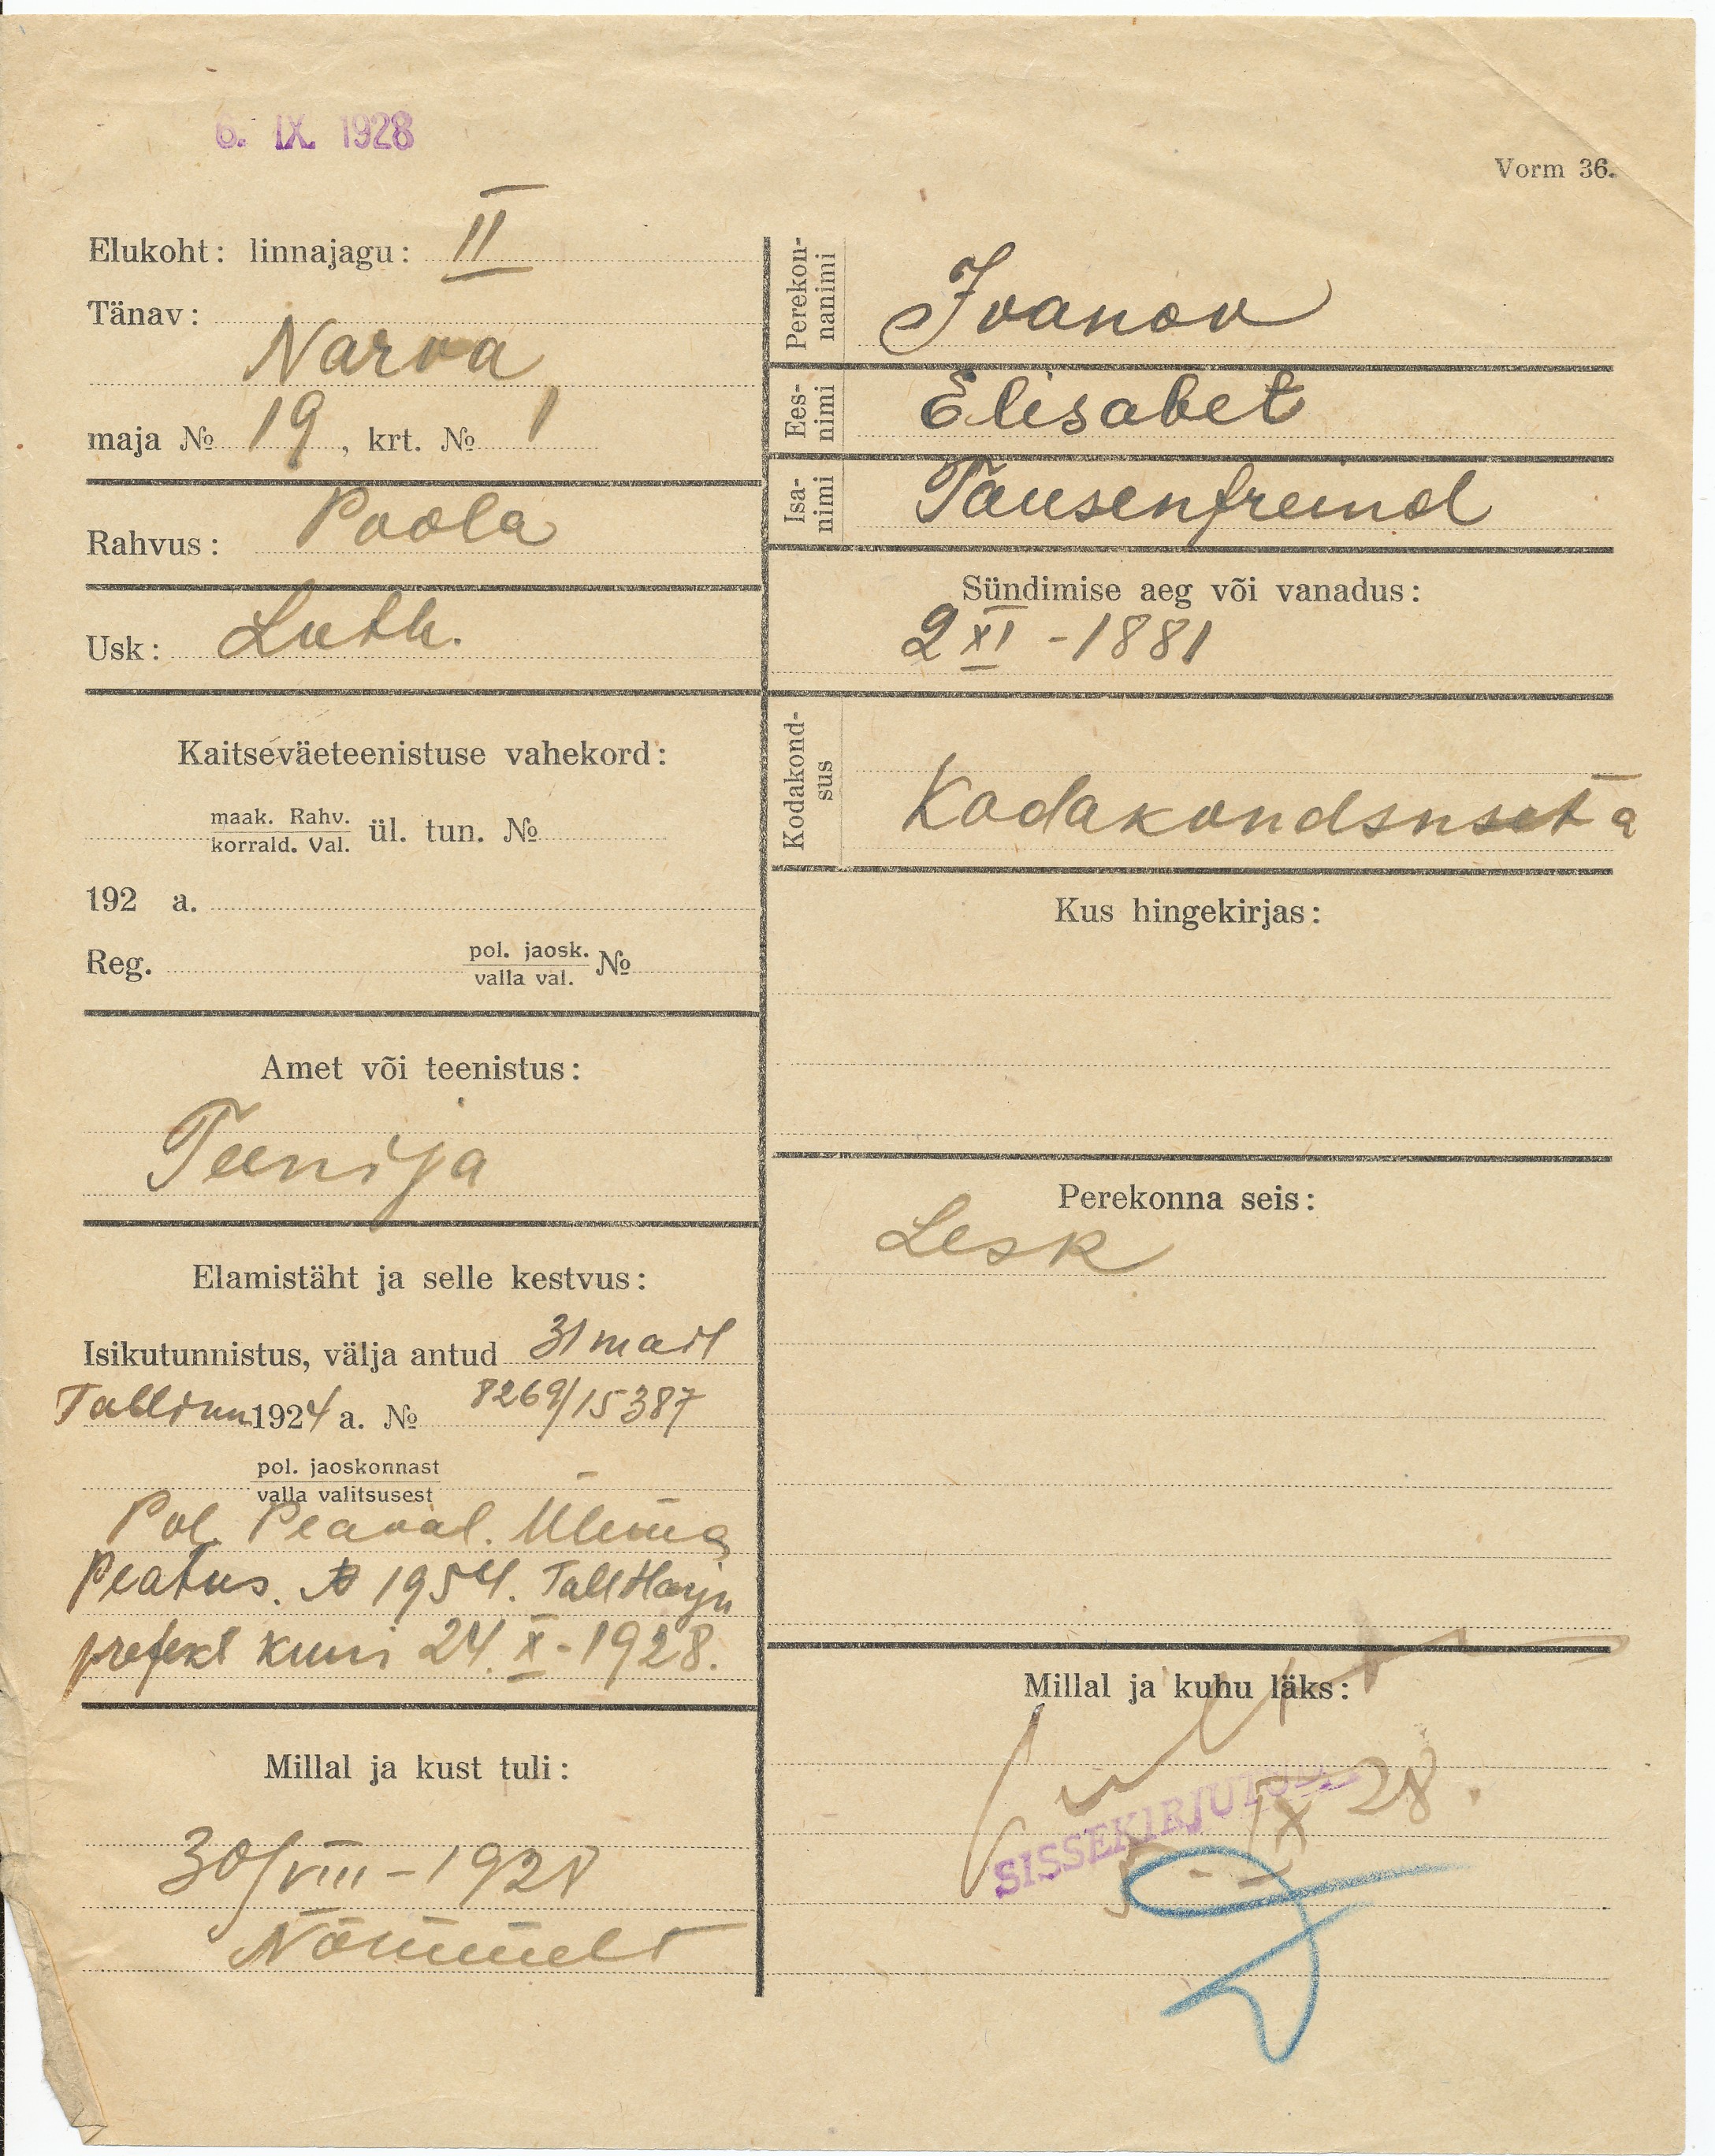 6. IX. 1928
Vorm 36.
Elukoht: linnajagu: II
Tänav:
Narva
maja № 19, krt. № 1
Rahvus: Poola
Usk: Luth.
Kaitseväeteenistuse vahekord:
maak. Rahv.
korrald. Val. ül. tun. №
192 a.
Reg. pol. jaosk.
valla val. №
Amet või teenistus:
Teenija
Elamistäht ja selle kestvus:
Isikutunnistus, välja antud 31 mail
Tallinn 1924 a. № 8269/15387
pol. jaoskonnast
valla valitsusest
Pol. Peaval. Ülema
Peatus. № 1954. Tall Harju
prefekt kuni 24. X - 1928.
Millal ja kust tuli:
30/VIII - 1928
Nõmmelt
Perekon-
nanimi
Ivanov
Ees-
nimi
Elisabet
Isa-
nimi
Tausenfreind
Sündimise aeg või vanadus:
2 XI - 1881
Kodakond-
sus
Kodakondsuseta
Kus hingekirjas:
Perekonna seis:
Lesk
Millal ja kuhu läks:
SISSEKIRJUTUD
5 - IX 28.